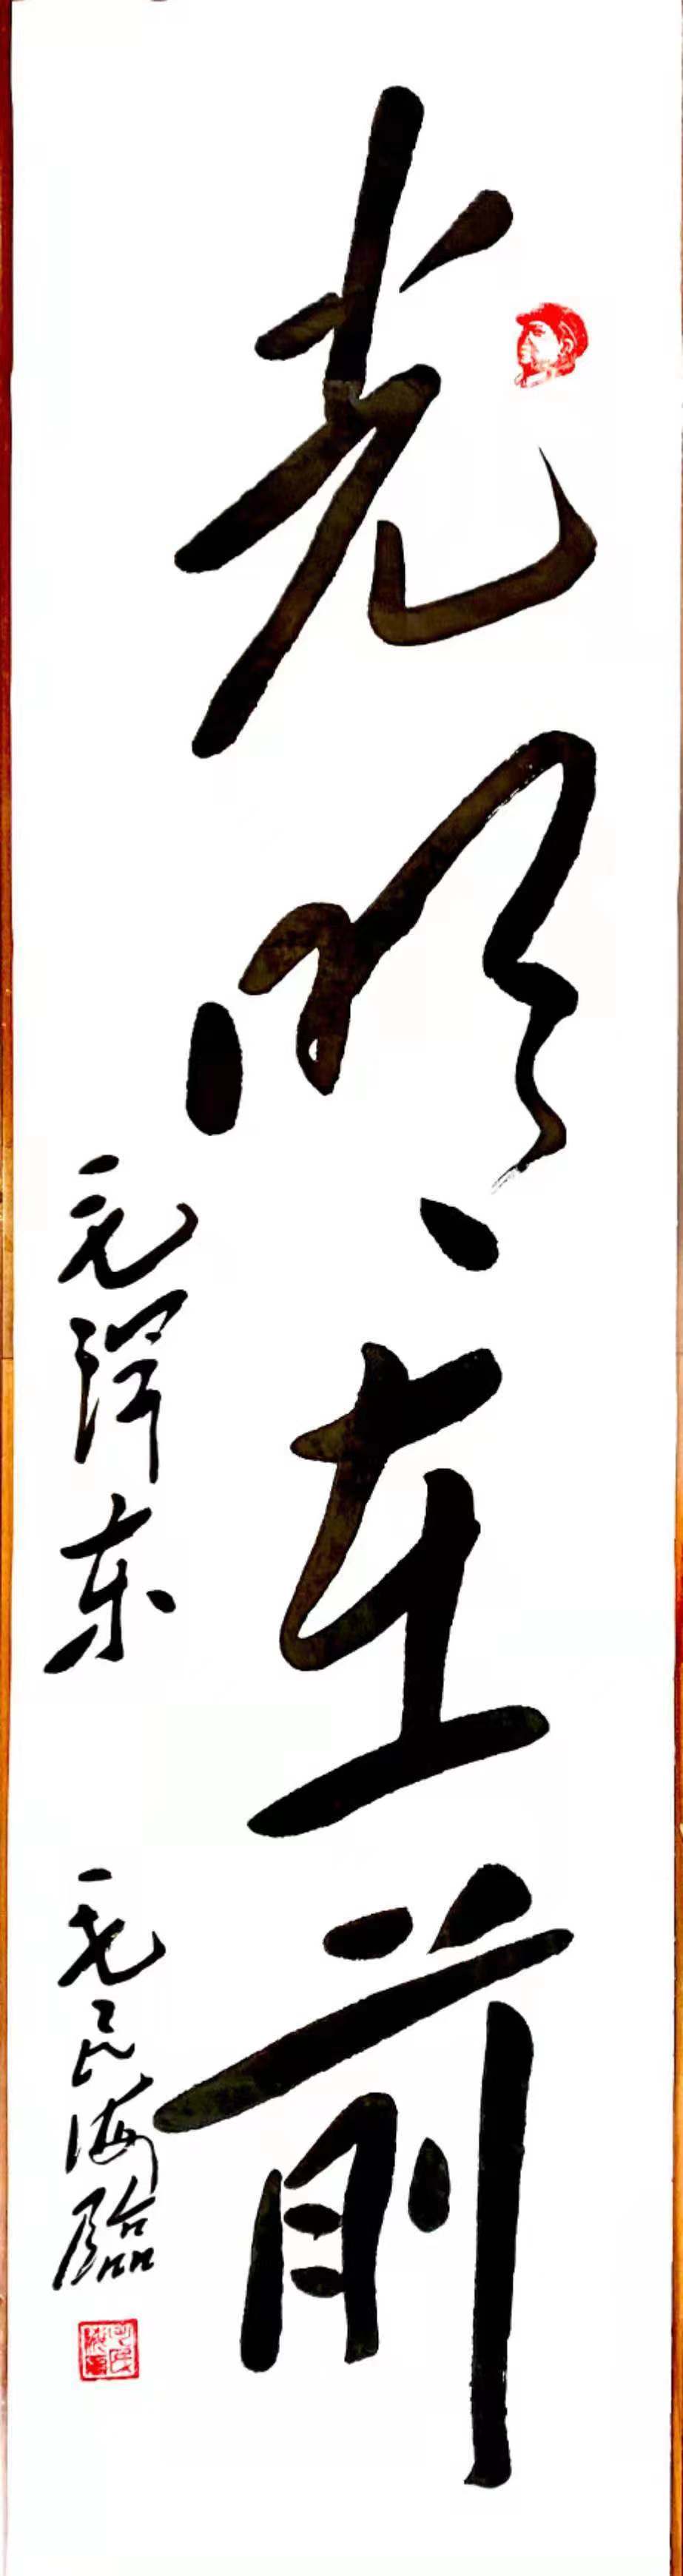 光明在前
毛泽东
毛民海臨